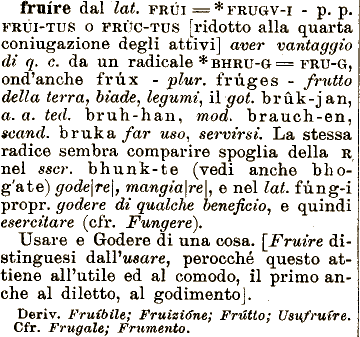 fruíre dal lat. FRÚI = *FRUGV-I - p. p.
FRÚI-TUS O FRÚC-TUS [ridotto alla quarta
coniugazione degli attivi] aver vantaggio
di q. c. da un radicale *BHRU-G = FRU-G,
ond'anche frúx - plur. frúges - frutto
della terra, biade, legumi, il got. brûk-jan,
a. a. ted. bruh-han, mod. brauch-en,
scand. bruka far uso, servirsi. La stessa
radice sembra comparire spoglia della R
nel sscr. bhunk-te (vedi anche bho-
g'ate) gode|re|, mangia|re|, e nel lat. fúng-i
propr. godere di qualche beneficio, e quindi
esercitare (cfr. Fungere).
Usare e Godere di una cosa. [Fruire di-
stinguesi dall'usare, perocché questo at-
tiene all'utile ed al comodo, il primo an-
che al diletto, al godimento].
Deriv. Fruíbile; Fruizióne; Frútto; Usufruíre.
Cfr. Frugale; Frumento.